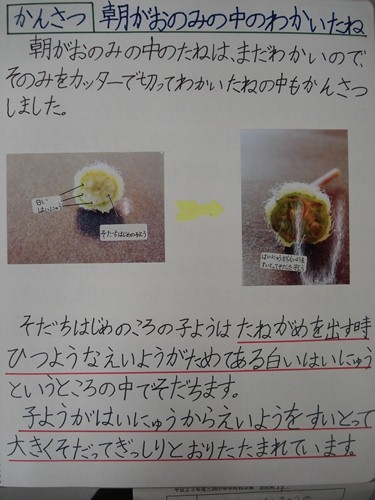 かんさつ 朝がおのみの中のわかいたね
朝がおのみの中のたねは、まだわかいので、
そのみをカッターで切ってわかいたねの中もかんさつ
しました。
白い
はいにゅう
そだちはじめの子よう
そだちはじめのころの子ようはたねがめを出す時
ひつようなえいようがためてある白いはいにゅう
というところの中でそだちます。
子ようがはいにゅうからえいようをすいとって
大きくそだってぎっしりとおりたたまれています。